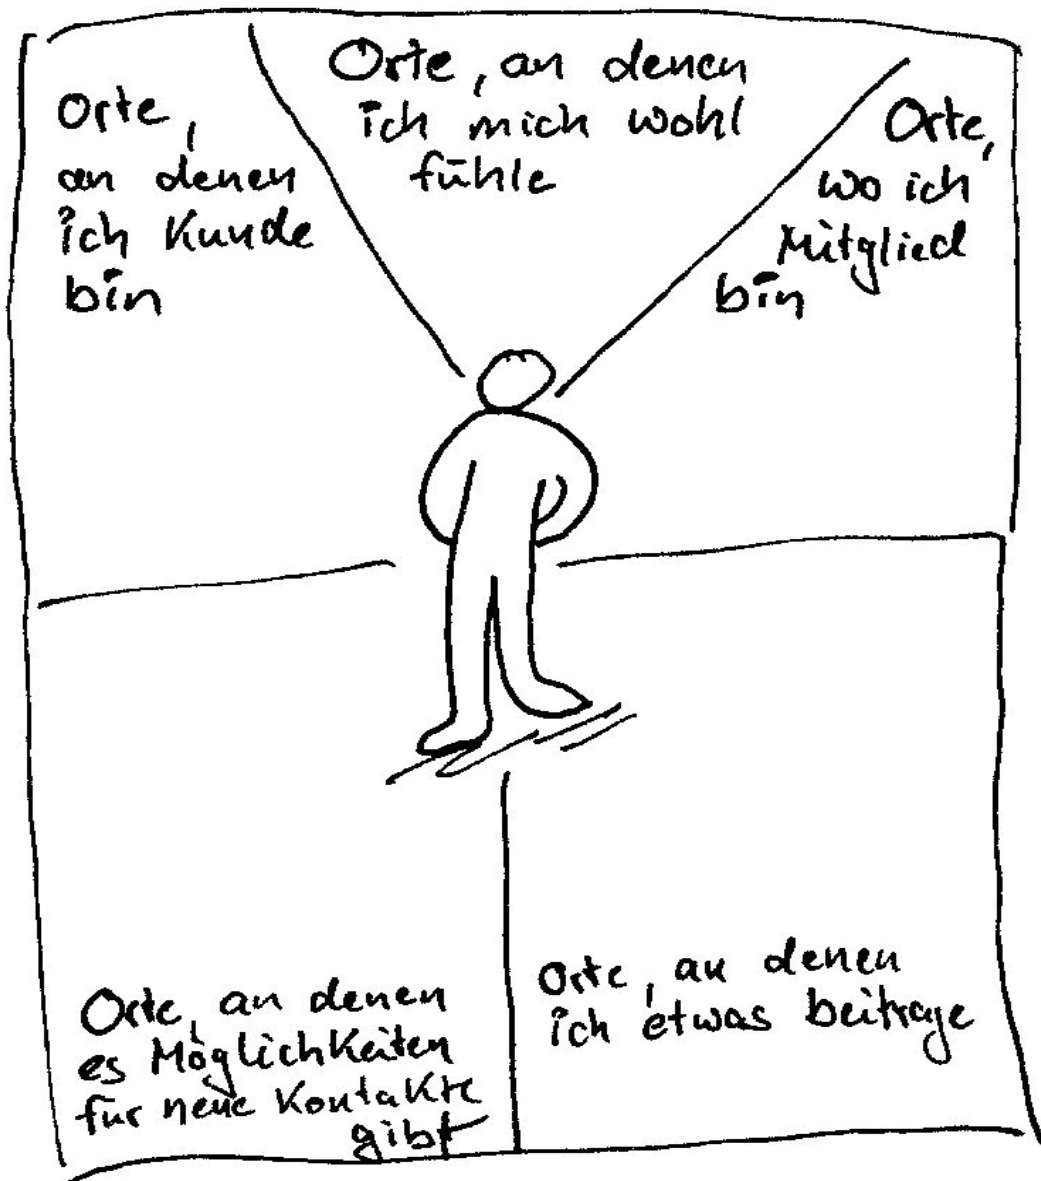 Orte,
an denen
ich Kunde
bin
Orte, an denen
ich mich wohl
fühle
Orte,
wo ich
Mitglied
bin
Orte, an denen
es Möglichkeiten
für neue Kontakte
gibt
Orte, an denen
ich etwas beitrage